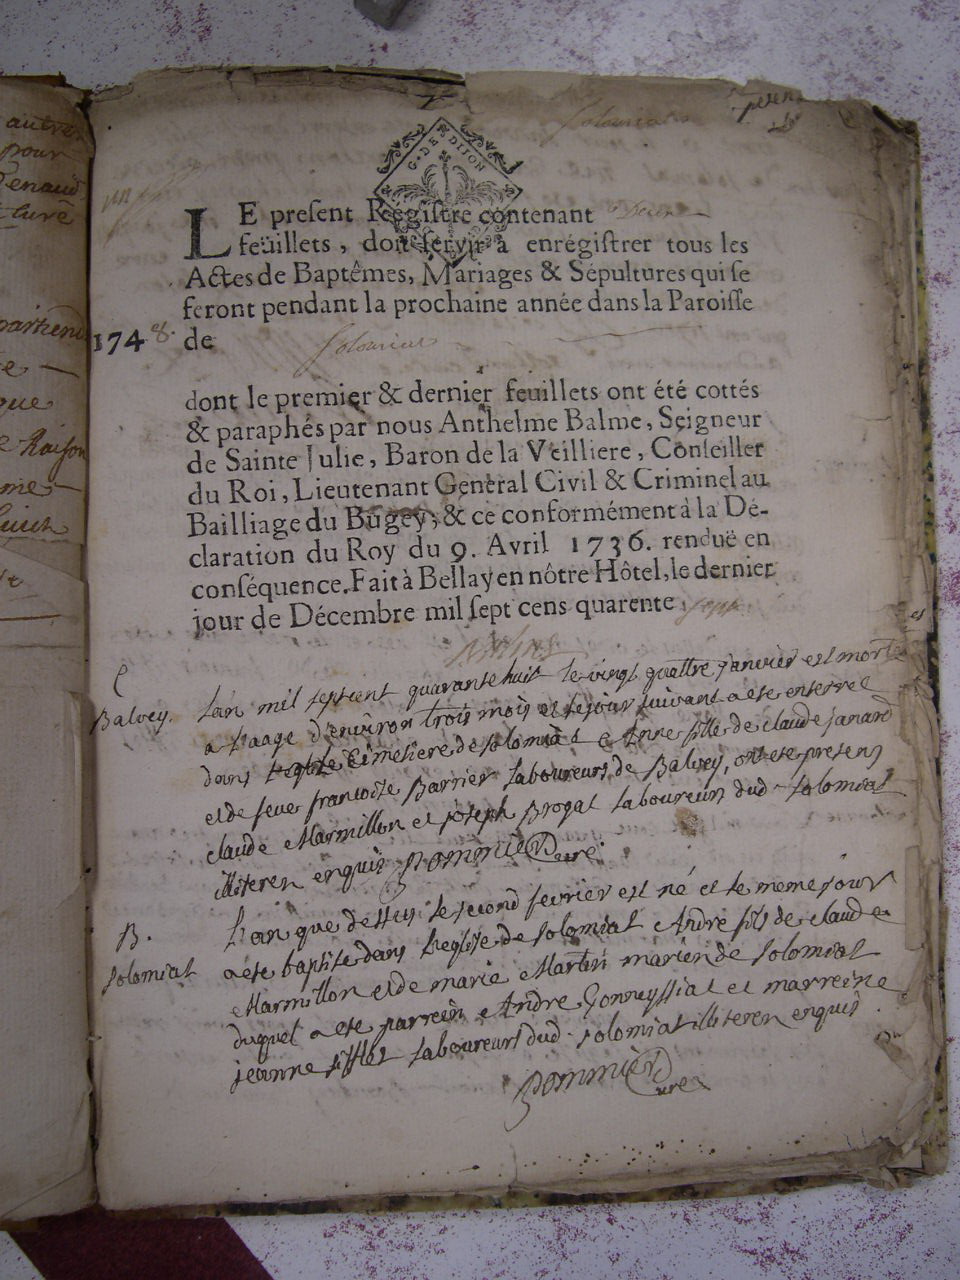 autres
pour
Renaud
curé
G. DE DIJON
LE present Régistre contenant
feüillets, doit servir à enrégistrer tous les
Actes de Baptêmes, Mariages & Sépultures qui se
feront pendant la prochaine année dans la Paroisse
1748. de
dont le premier & dernier feuillets ont été cottés
& paraphés par nous Anthelme Balme, Seigneur
de Sainte Julie, Baron de la Veilliere, Conseiller
du Roi, Lieutenant Genéral Civil & Criminel au
Bailliage du Bugey; & ce conformément à la Dé-
claration du Roy du 9. Avril 1736. renduë en
conséquence. Fait à Bellay en nôtre Hôtel, le dernier
jour de Décembre mil sept cens quarente sept
Balvey. Lan mil septcent quarante huit le vingt quattre janvier est morte
a l'aage d'environ trois mois et le jour suivant a ete enterree
dans le Cimetiere de Solomiat Anne fille de claude janard
et de feue francoise Barrier laboureurs de Balvey, ont ete presens
claude Marmillon et joseph Brogat laboureurs dud. Solomiat
illiteren enquis Pommier Curé
B. L'an que dessus le second fevrier est né et le meme jour
Solomiat a ete baptisé dans l'eglise de Solomiat André fils de claude
Marmillon et de marie Martin mariés de Solomiat
duquel a ete parrein André Gonneyssiat et marreine
jeanne Sifflet laboureurs dud. Solomiat illiteren enquis
Pommier Curé